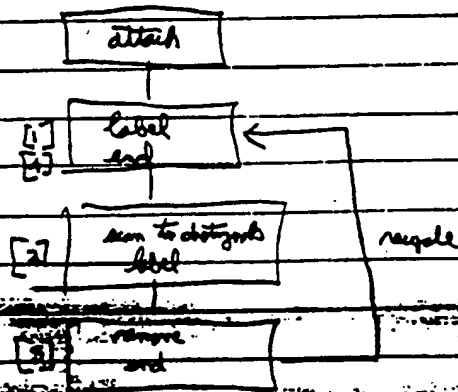 attach
[1] label
[4] end
[2] scan to distinguish
label
recycle
[3] remove
end